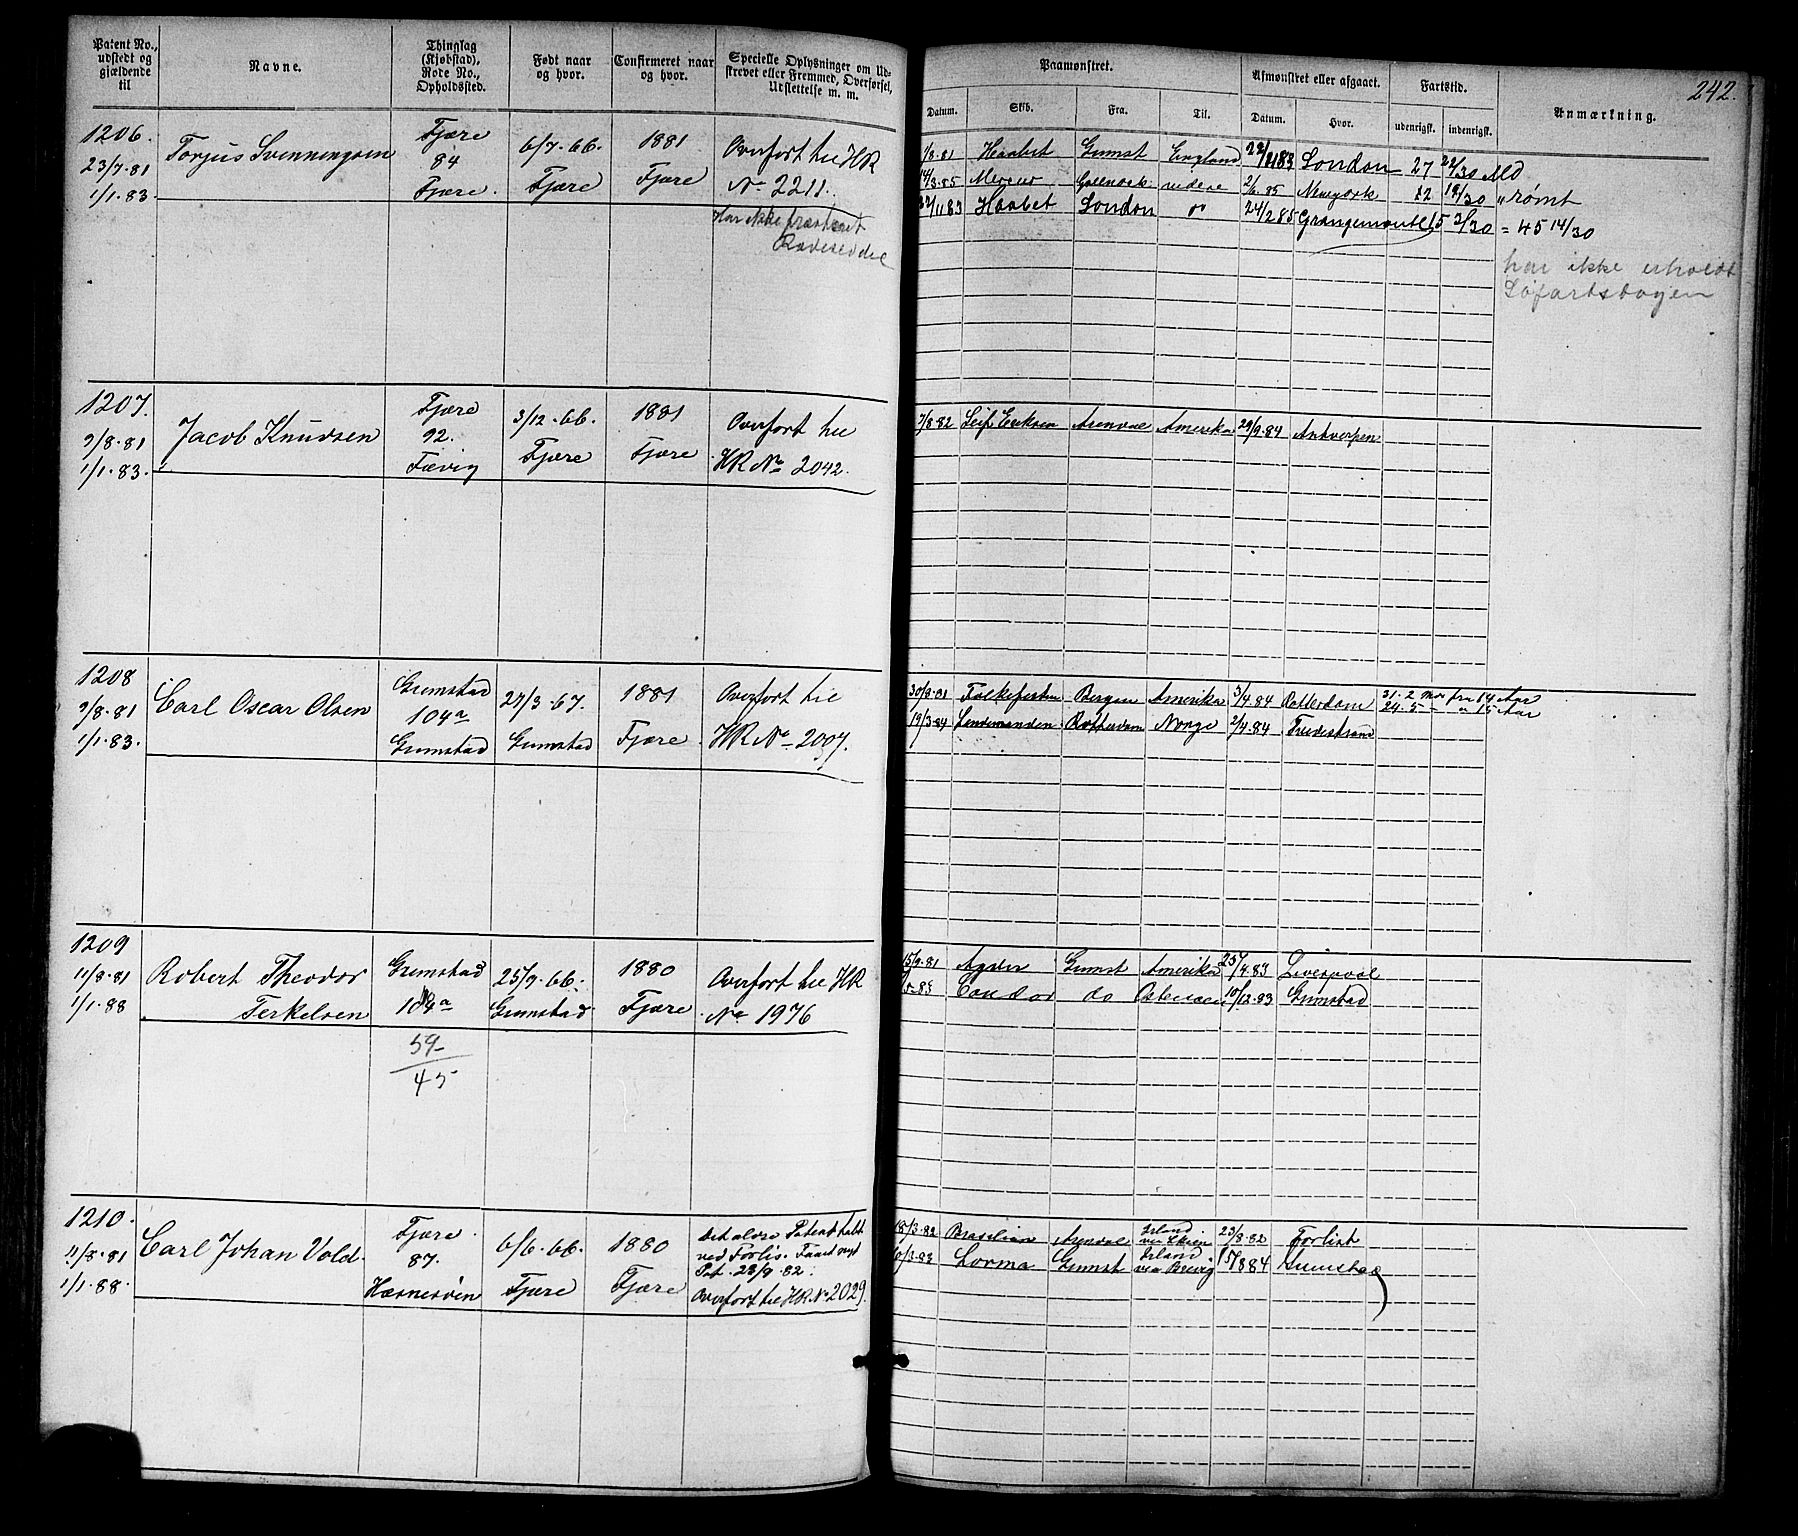 242.
Patent No., udstedt og gjældende til
Navne.
Thinglag (Kjøbstad), Rode No., Opholdssted.
Født naar og hvor.
Confirmeret naar og hvor.
Specielle Oplysninger om Udstrevet eller Fremmed, Overførsel, Udslettelse m. m.
Paamønstret.
Datum. Skib. Fra. Til.
Afmønstret eller afgaaet.
Datum. Hvor.
Fartstid.
udenrigsk. indenrigsk.
Anmærkning.
1206.
23/7.81
1/1.83.
Torjus Svenningsen
Fjære
84
Fjære.
6/7.66.
Fjære
1881
Fjære
Overført til HR
No 2211.
Har ikke præsteret
Rodeseddel
/8.81 Haabet Grmst England 22/1183 London 27 22/30 Md
14/3.85 Mercur Greenock videre 2/6.85 Newyork 12 18/30 " rømt
22/1183 Haabet London do 24/285 Grangemouth 15 3/30 = 45 14/30
har ikke erholdt
Søfartsbogen
1207.
9/8.81
1/1.83.
Jacob Knudsen
Fjære
92.
Fævig
3/12.66.
Fjære
1881
Fjære
Overført til
HR No 2042.
7/8.82 Leif Eriksen Arendal Amerika 29/9.84 Antverpen
1208
9/8.81
1/1.83.
Carl Oscar Olsen
Grimstad
104a
Grimstad
27/3.67.
Grimstad
1881
Fjære
Overført til
HR No 2007.
30/8.81 Folkefesten Bergen Amerika 3/4.84 Rotterdam 31.2 Mdr fra 14 Aar
24.5 — " 15 Aar
19/3.84 Lindemanden Rotterdam Norge 2/4.84 Tvedestrand
1209
11/8.81
1/1.88
Robert Theodor
Terkelsen
Grimstad
104a
59
45
25/9.66.
Grimstad
1880
Fjære
Overført til HR
No 1976
15/9.81 Agder Grmst Amerika 25/4.83 Liverpool
Condor do Østersøen 10/12.83 Grimstad
1210.
11/8.81
1/1.88.
Carl Johan Vold.
Fjære
87.
Hasnesvien
6/6.66.
Fjære
1880
Fjære
Det ældre Patent tabt
ved Forlis. Faaet nyt
Pat. 28/9.82.
Overført til HR. No 2029.
18/3.82 Brasilian Arendal Irland via Skien 23/8.82 Forlist
6/3.83 Lorma Grmst Irland via Brevig 15/884 Grimstad